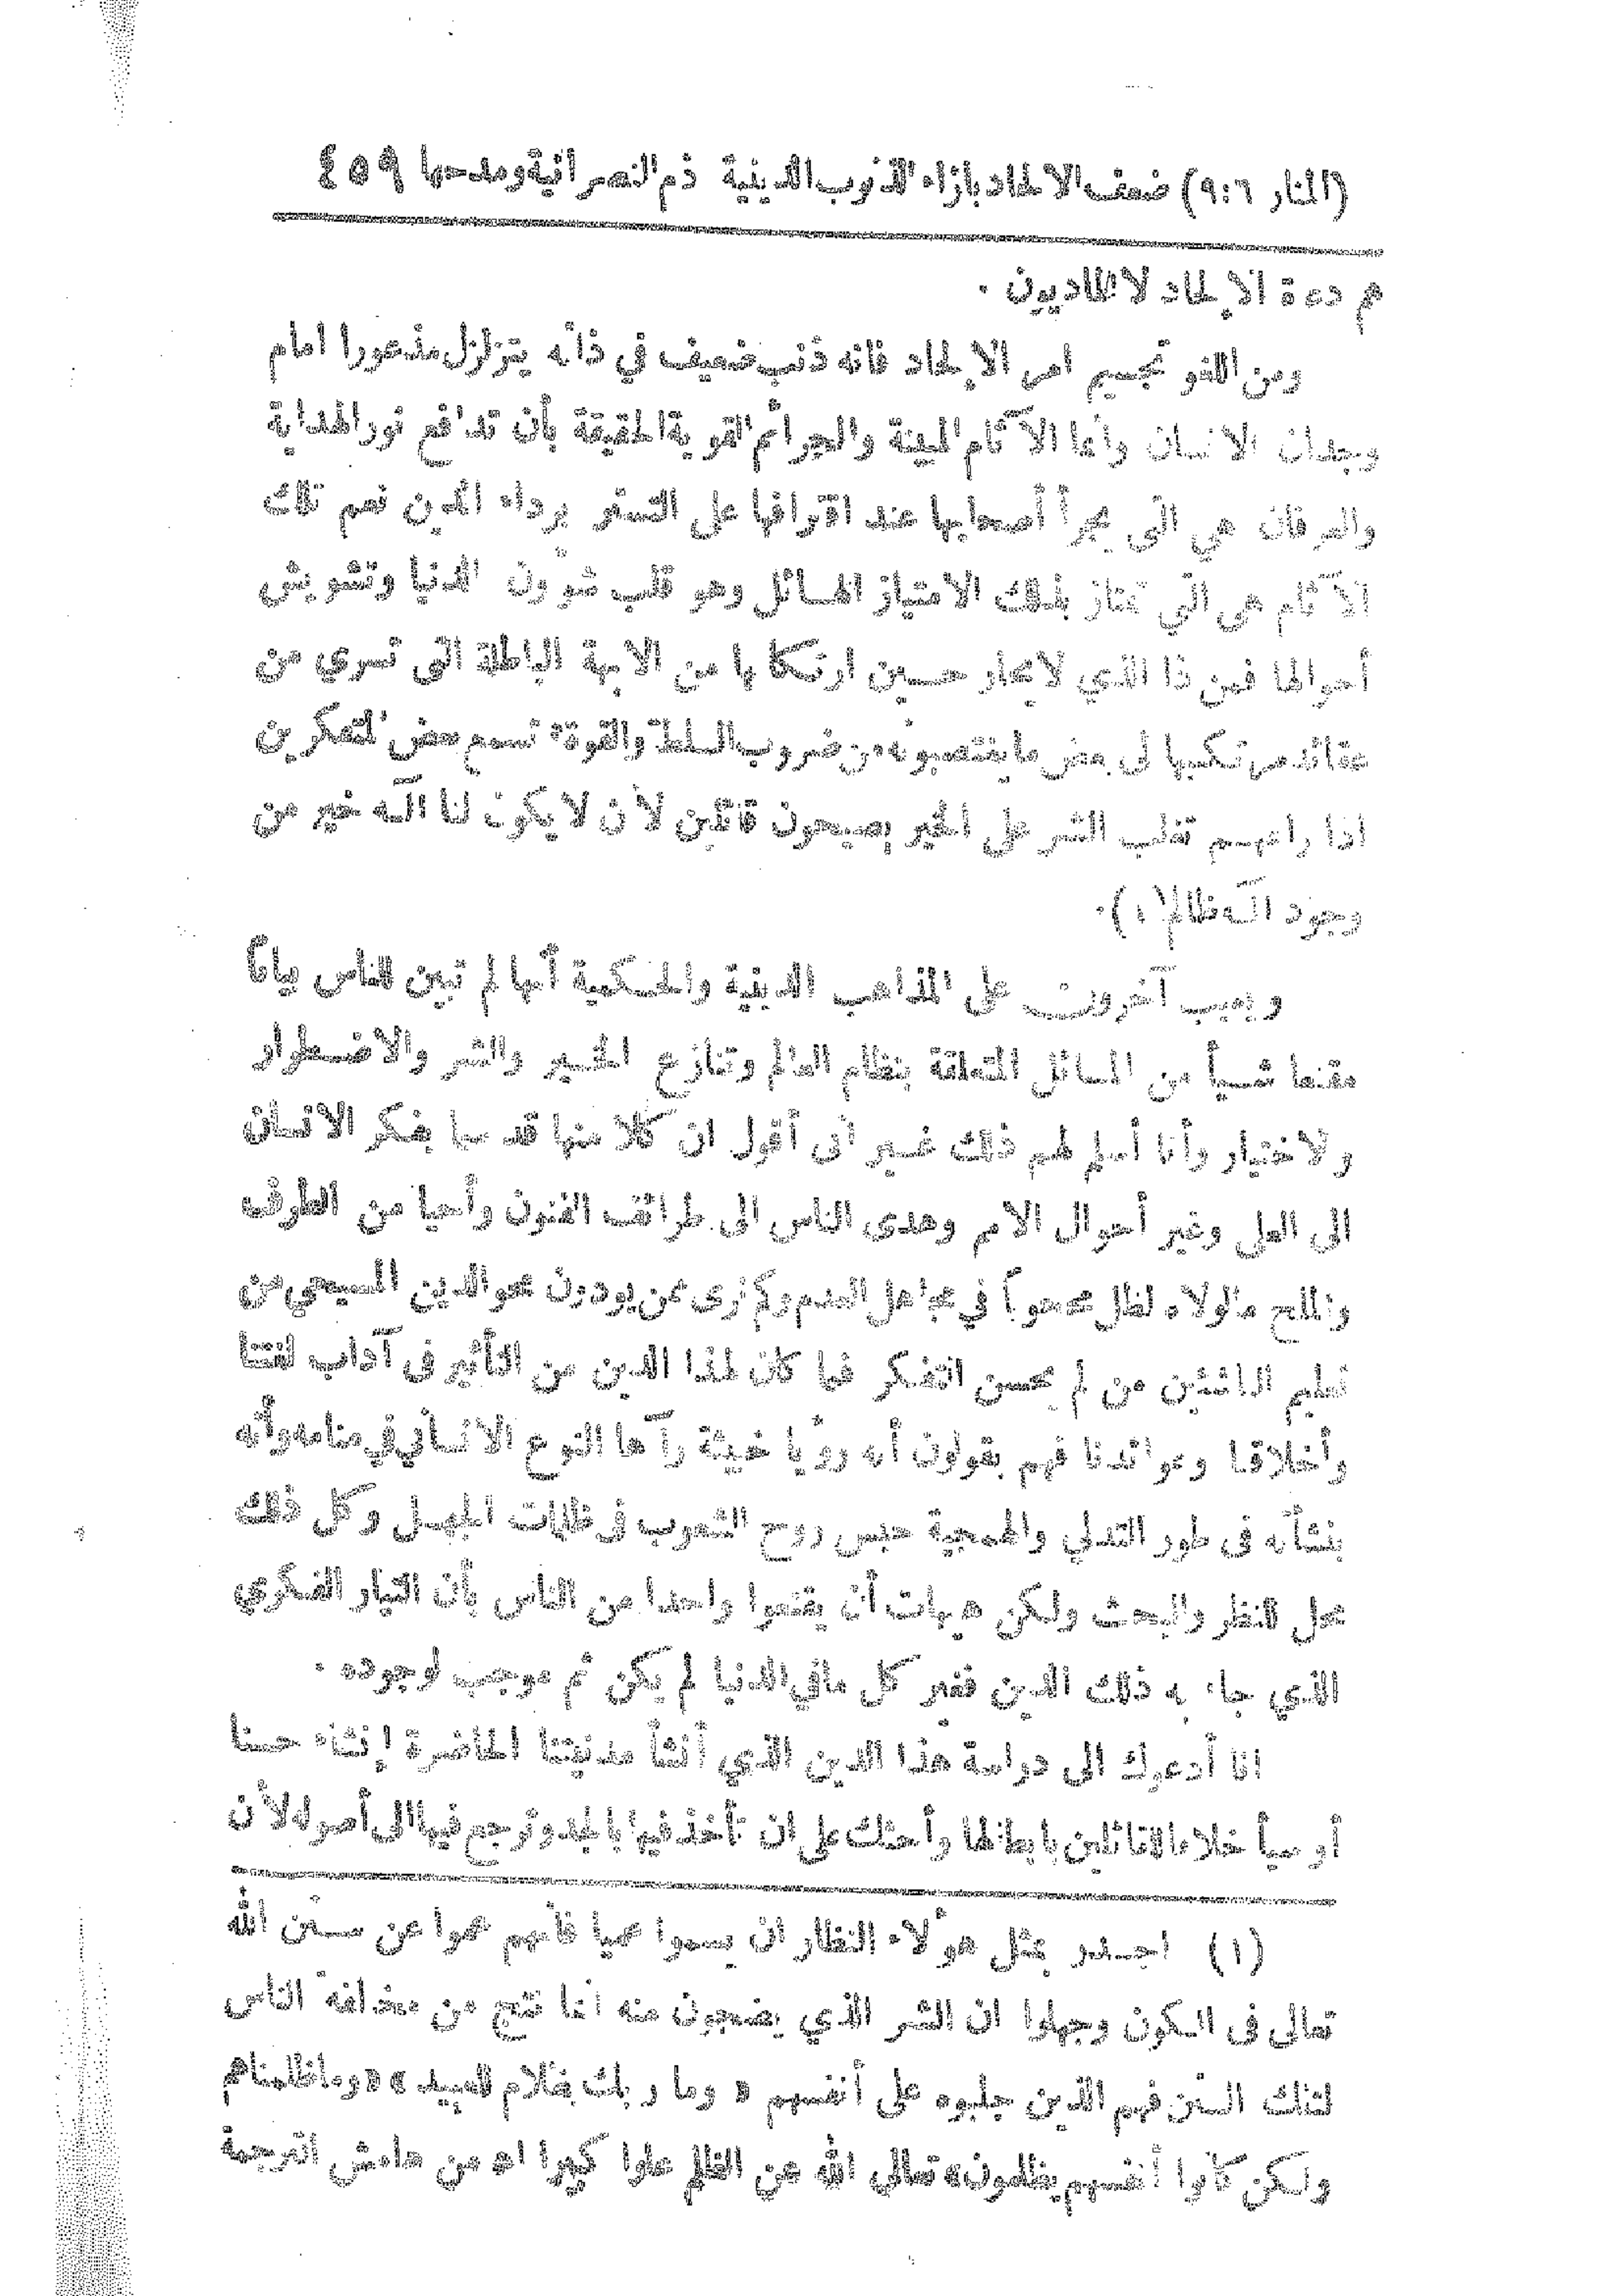 (المنار ٩:٦) ضعف الالحاد بازاء الذنوب الدينية ذم النصرانية ومدحها ٤٥٩
هم دعاة الإلحاد لا الماديون .
ومن اللغو تجسيم امر الالحاد فانه ذنب ضعيف في ذاته يتزلزل مذعورا امام
وجدان الانسان وأما الآثام المبينة والجرائم القوية الحقيقة بأن تدافع نور الهداية
والعرفان هي التي يجرأ أصحابها عند اقترافها على التستر برداء الدين نعم تلك
الآثام هي التي تمتاز بذلك الامتياز الهائل وهو قلب شؤون الدنيا وتشويش
أحوالها فمن ذا الذي لا يحار حين ارتكابها من الابهة الباطلة التي تسري من
عقائد مرتكبيها الى بعض ما يغتصبونه من ضروب السلطة والقوة نسمع بعض المتفكرين
اذا راعهم تغلب الشر على الخير يصيحون قائلين لأن لا يكون لنا اله خير من
وجود اله ظالم(١).
ويعيب آخرون على المذاهب الدينية والحكمية أنها لم تبين للناس بيانًا
مقنعا شيأ من المسائل المتعلقة بنظام العالم وتنازع الخير والشر والاضطرار
والاختيار وأنا أسلم لهم ذلك غير أني أقول ان كلا منها قد سما بفكر الانسان
الى العلى وغير أحوال الامم وهدى الناس الى طرائف الفنون وأحيا من الطرف
والملح ما لولاه لظل ممحوًا في مجاهل العدم وكم نرى ممن يودون محو الدين المسيحي من
تعليم الناشئين من لم يحسن التفكر فيما كان لهذا الدين من التأثير في آداب لغتنا
وأخلاقنا وعوائدنا فهم يقولون أنه رؤيا خبيثة رآها النوع الانساني في منامه وأنه
بنشأته في طور التدلي والهمجية حبس روح الشعوب في ظلمات الجهل وكل ذلك
محل للنظر والبحث ولكن هيهات أن يقنعوا واحدا من الناس بأن التيار الفكري
الذي جاء به ذلك الدين فغير كل ما في الدنيا لم يكن ثم موجب لوجوده .
انا أدعوك الى دراسة هذا الدين الذي أنشأ مدنيتنا الحاضرة إنشاء حسنا
أو سيأ خلافا للقائلين بابطالها وأحثك على ان تأخذ فيها بالجد وترجع فيها الى أصوله لأن
(١) اجدر بمثل هؤلاء النظار ان يسموا عميا فأنهم عموا عن سنن الله
تعالى في الكون وجهلوا ان الشر الذي يضجون منه انما نتج من مخالفة الناس
لتلك السنن فهم الذين جلبوه على أنفسهم « وما ربك بظلام للعبيد » «وما ظلمناهم
ولكن كانوا أنفسهم يظلمون» تعالى الله عن الظلم علوا كبيرا اه من هامش الترجمة